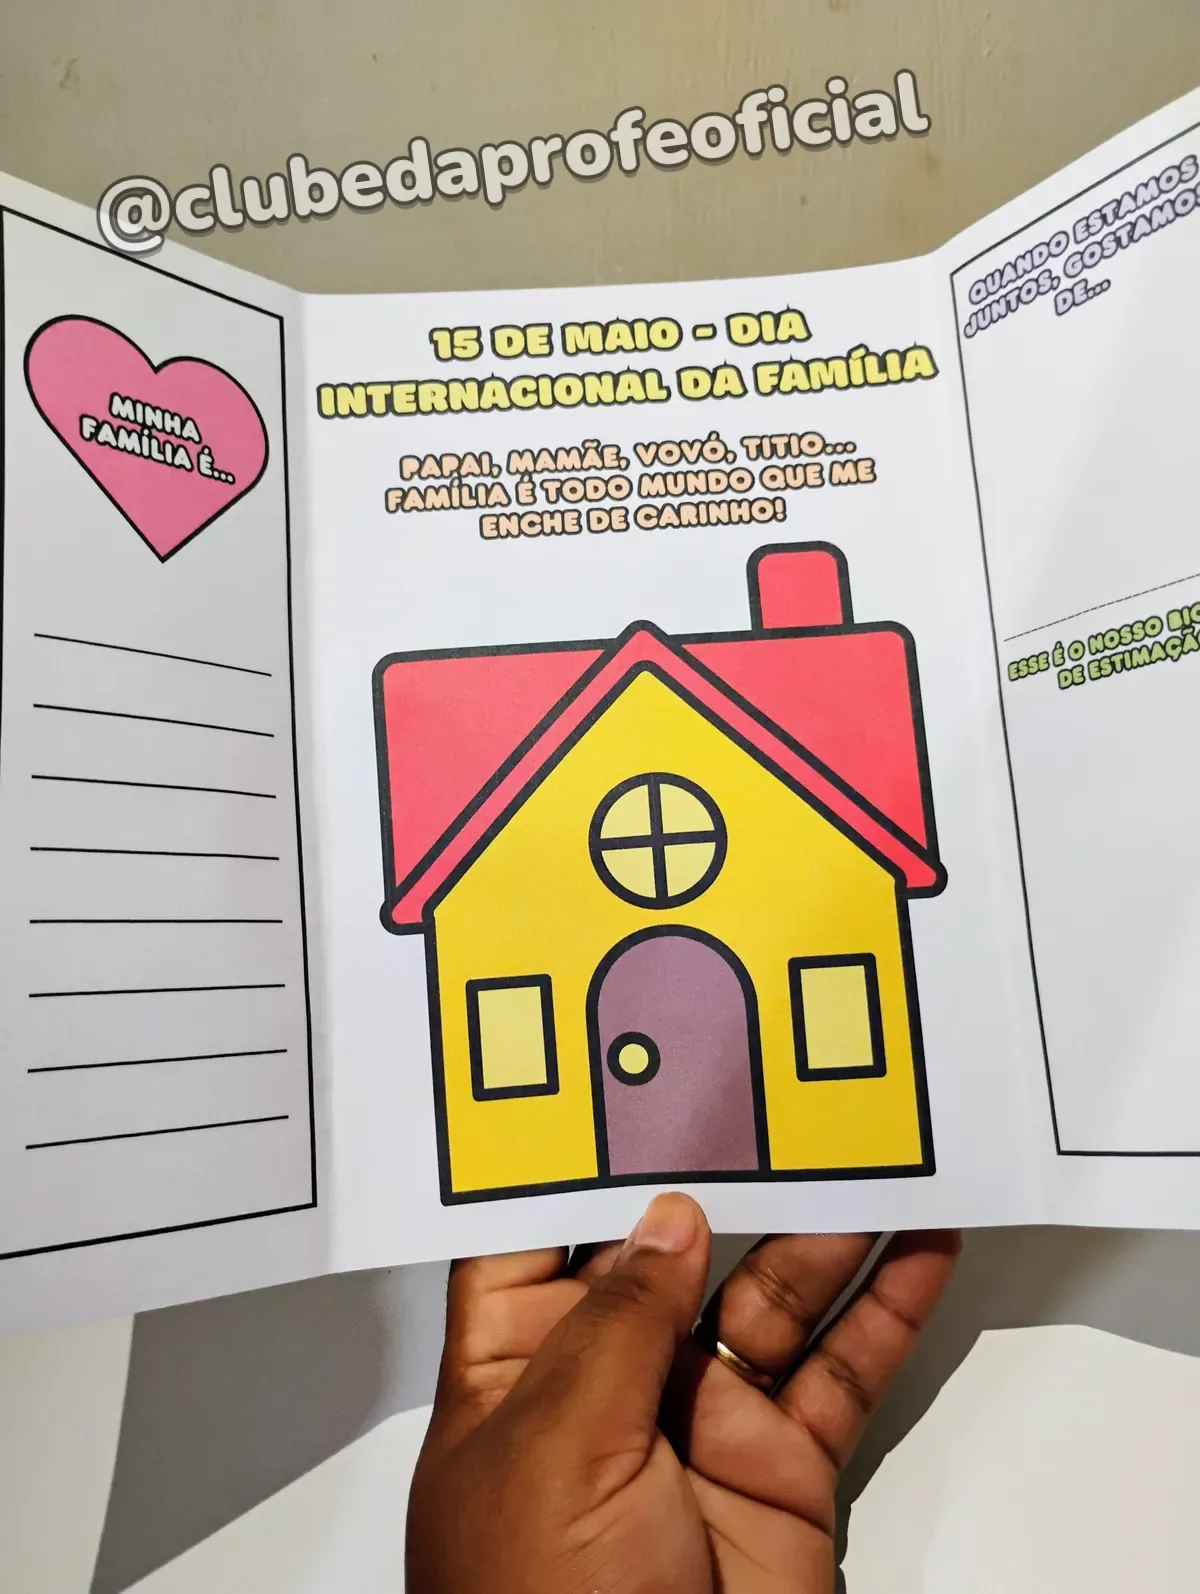 @clubedaprofeoficial
MINHA
FAMÍLIA É...
15 DE MAIO - DIA
INTERNACIONAL DA FAMÍLIA
PAPAI, MAMÃE, VOVÓ, TITIO...
FAMÍLIA É TODO MUNDO QUE ME
ENCHE DE CARINHO!
QUANDO ESTAMOS
JUNTOS, GOSTAMOS
DE...
ESSE É O NOSSO
DE